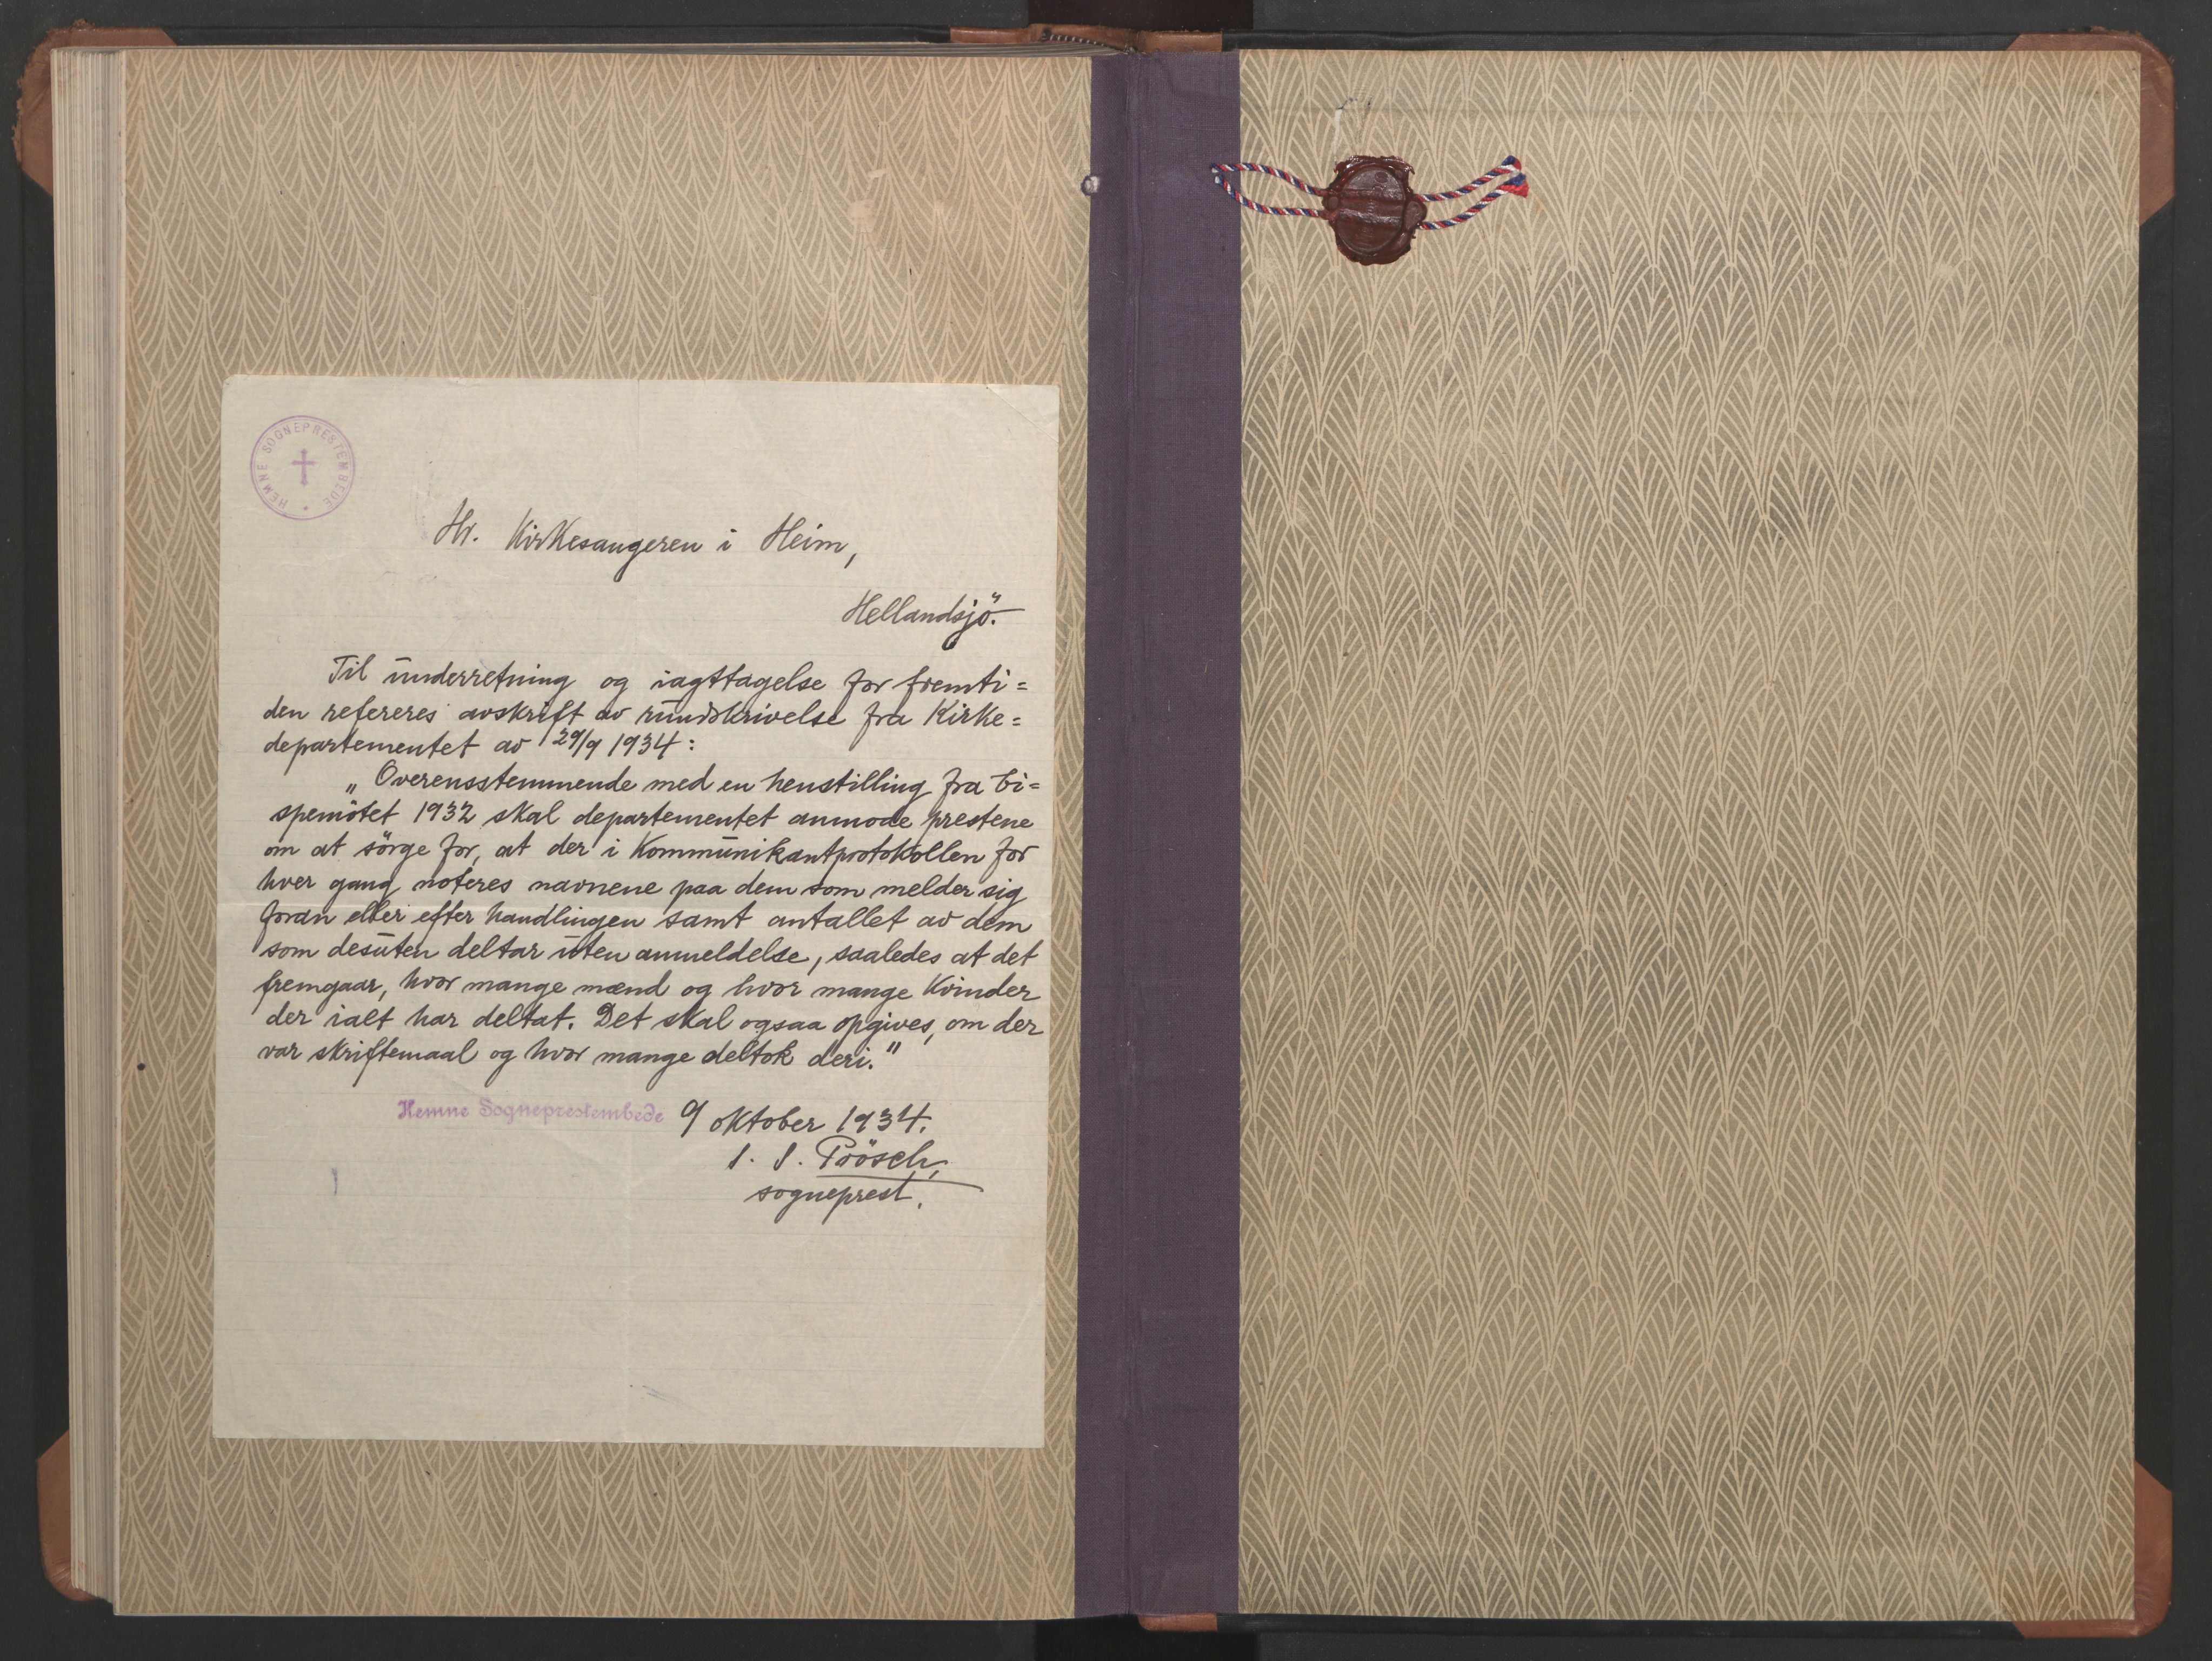 HEMNE SOGNEPRESTEMBEDE
Hr. Kirkesangeren i Heim,
Hellandsjö.
Til underretning og iagttagelse for fremti=
den refereres avskrift av rundskrivelse fra Kirke=
departementet av 29/9 1934:
„Overensstemmende med en henstilling fra bi=
spemötet 1932 skal departementet anmode prestene
om at sörge for, at der i Kommunikantprotokollen for
hver gang noteres navnene paa dem som melder sig
foran eller efter handlingen samt antallet av dem
som desuten deltar uten anmeldelse, saaledes at det
fremgaar, hvor mange mænd og hvor mange Kvinder
der ialt har deltat. Det skal ogsaa opgives, om der
var skriftemaal og hvor mange deltok deri."
Hemne Sogneprestembede 9 oktober 1934.
sogneprest.